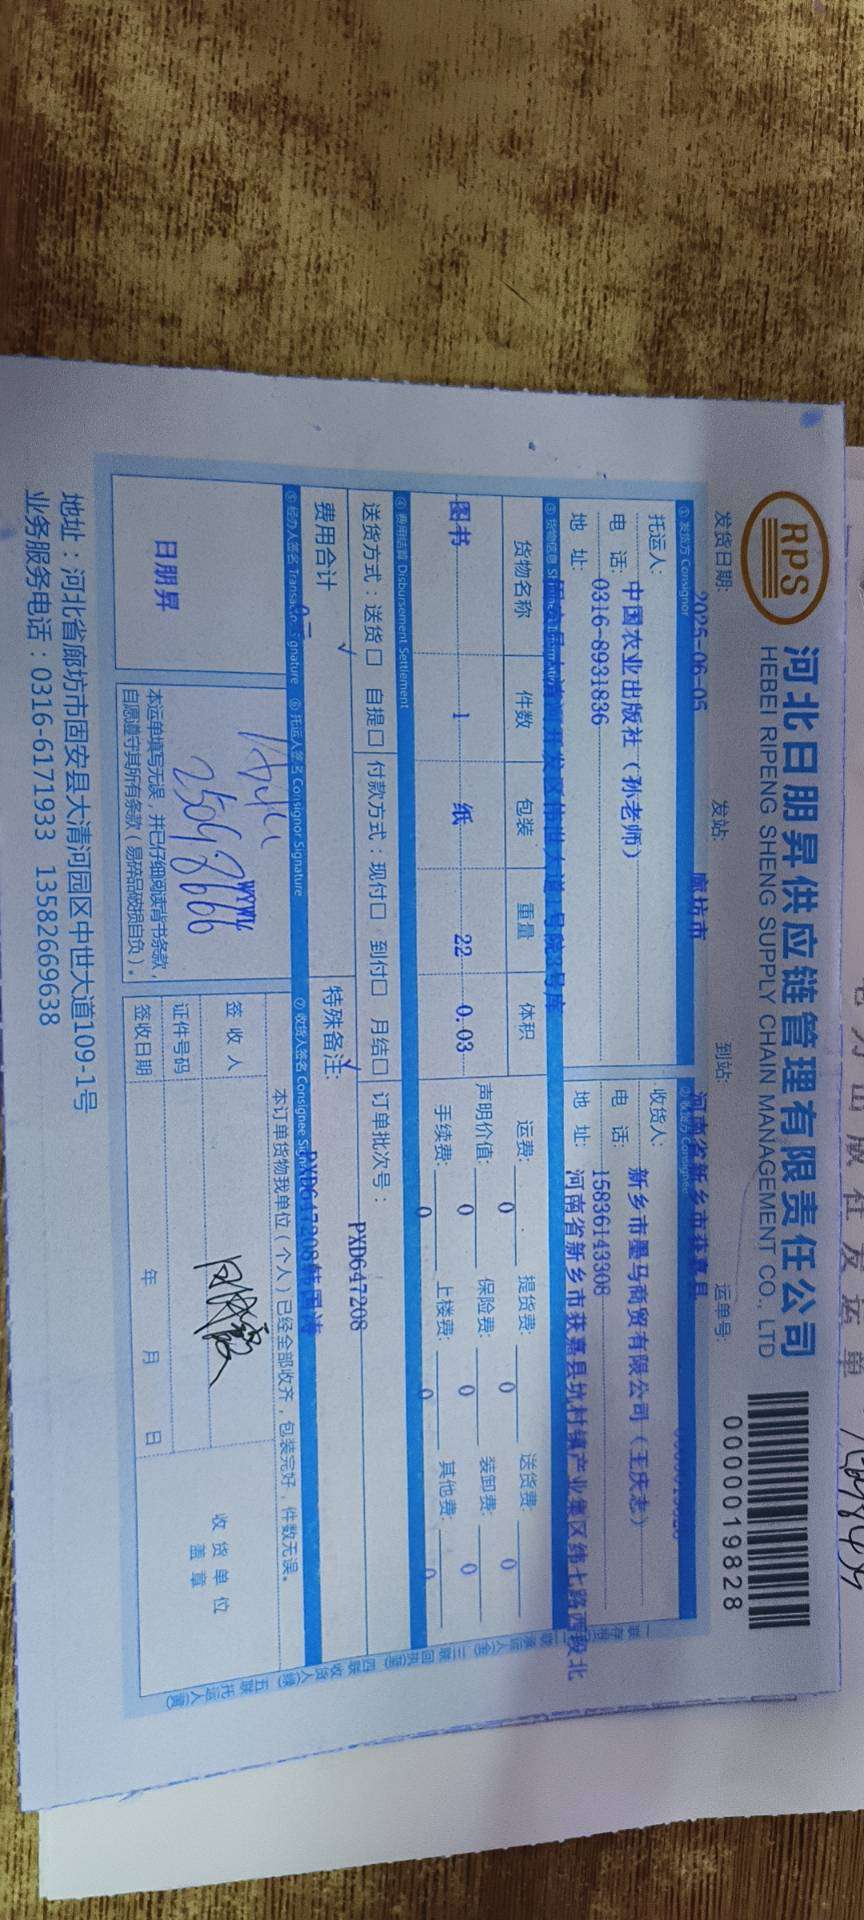 RPS
河北日朋昇供应链管理有限责任公司
HEBEI RIPENG SHENG SUPPLY CHAIN MANAGEMENT CO., LTD
0000019828
发货日期: 2025-06-05 发站: 廊坊市 到站: 河南省新乡市获嘉县 运单号:
① 发货方 Consignor ② 收货方 Consignee
托运人: 中国农业出版社(孙老师) 收货人: 新乡市墨马商贸有限公司(王庆志)
电 话: 0316-8931836 电 话: 15836143308
地 址: 地 址: 河南省新乡市获嘉县亢村镇产业集区纬七路西段北
③ 货物信息
货物名称 件数 包装 重量 体积 运费: 0 提货费: 0 送货费: 0
声明价值: 0 保险费: 0 装卸费: 0
图书 1 纸 22 0.03 手续费: 0 上楼费: 0 其他费: 0
④ 费用结算 Disbursement Settlement
送货方式:送货□ 自提□ 付款方式:现付□ 到付□ 月结□ 订单批次号: PXD647208
√ √
费用合计 特殊备注: PXD647208韩国涛
⑤ 经办人签名 ⑥ 托运人签名 Consignor Signature ⑦ 收货人签名 Consignee
本订单货物我单位(个人)已经全部收齐,包装完好,件数无误。
日朋昇
WYWL
签 收 人
证件号码
签收日期 年 月 日
收 货 单 位
盖 章
本运单填写无误,并已仔细阅读背书条款,
自愿遵守其所有条款(易碎品破损自负)。
地址:河北省廊坊市固安县大清河园区中世大道109-1号
业务服务电话:0316-6171933 13582669638